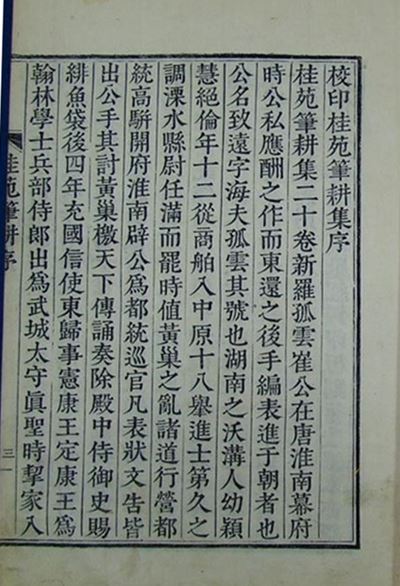 校印桂苑筆耕集序
桂苑筆耕集二十卷新羅孤雲崔公在唐淮南幕府
時公私應酬之作而東還之後手編表進于朝者也
公名致遠字海夫孤雲其號也湖南之沃溝人幼穎
慧絕倫年十二從商舶入中原十八舉進士第久之
調溧水縣尉任滿而罷時値黃巢之亂諸道行營都
統高騈開府淮南辟公爲都統巡官凡表狀文告皆
出公手其討黃巢檄天下傳誦奏除殿中侍御史賜
緋魚袋後四年充國信使東歸事憲康王定康王爲
翰林學士兵部侍郎出爲武城太守眞聖時挈家入
桂苑筆耕序
三